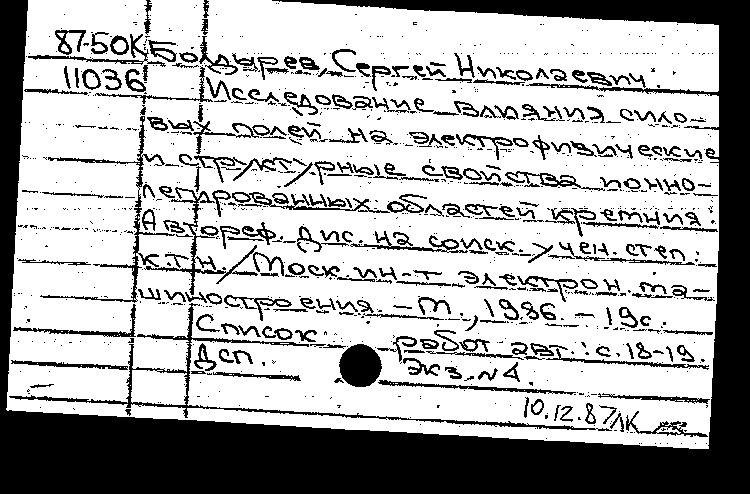 87-50К Болдырев, Сергей Николаевич.
11036 Исследование влияния сило-
вых полей на электрофизические
и структурные свойства ионно-
легированных областей кремния:
Автореф. дис. на соиск. учен. степ.
к.т.н. / Моск. ин-т электрон. ма-
шиностроения. - М., 1986. - 19с.
Список работ авт.: с. 18-19.
ДСП. Экз. N4.
10.12.87 ЛК